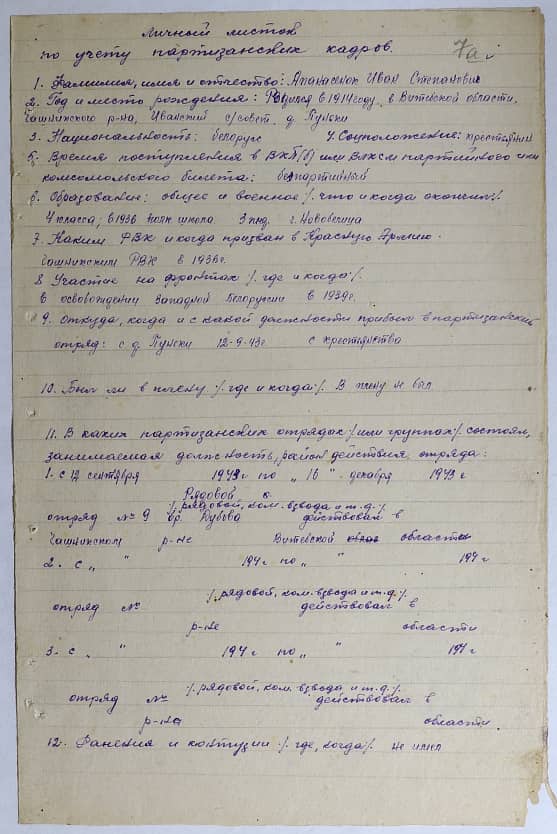 Личный листок
по учету партизанских кадров.
7а
1. Фамилия, имя и отчество: Апанасенок Иван Степанович
2. Год и место рождения: Родился в 1914 году, в Витебской области,
Чашникского р-на, Иванский с/совет д. Пунки
3. Национальность: белорус 4. Соцположение: крестьянин
5. Время поступления в ВКП(б) или ВЛКСМ партийного или
комсомольского билета: беспартийный
6. Образование: общее и военное /. что и когда окончил/.
4 класса; в 1936 полк школа 3 пкд. г.
7. Каким РВК и когда призван в Красную Армию.
Чашникским РВК в 1936 г.
8 Участие на фронтах /. где и когда/.
В освобождении Западной Белоруссии в 1939 г.
9. Откуда, когда и с какой должности прибыл в партизанский
отряд: с д. Пунки 12-9-43 г. с крестьянства
10. Был ли в плену /. где и когда/. В плену не был
11. В каких партизанских отрядах /. или группах/. состоял,
занимаемая должность, район действия отряда:
1. с 12 сентября 1943 г по „ 16 " декабря 1943 г
Рядовой
/. рядовой, ком. взвода и т.д./.
отряд № 9 бр. Дубова действовал в
Чашникском р-не Витебской области
2. с „ " 194 г по „ " 194 г
/. рядовой, ком. взвода и т.д./.
отряд № действовал в
р-не области
3. с „ " 194 г по „ " 194 г
/. рядовой, ком. взвода и т.д./.
отряд № действовал в
р-не области
12. Ранения и контузии /. где, когда/. не имел